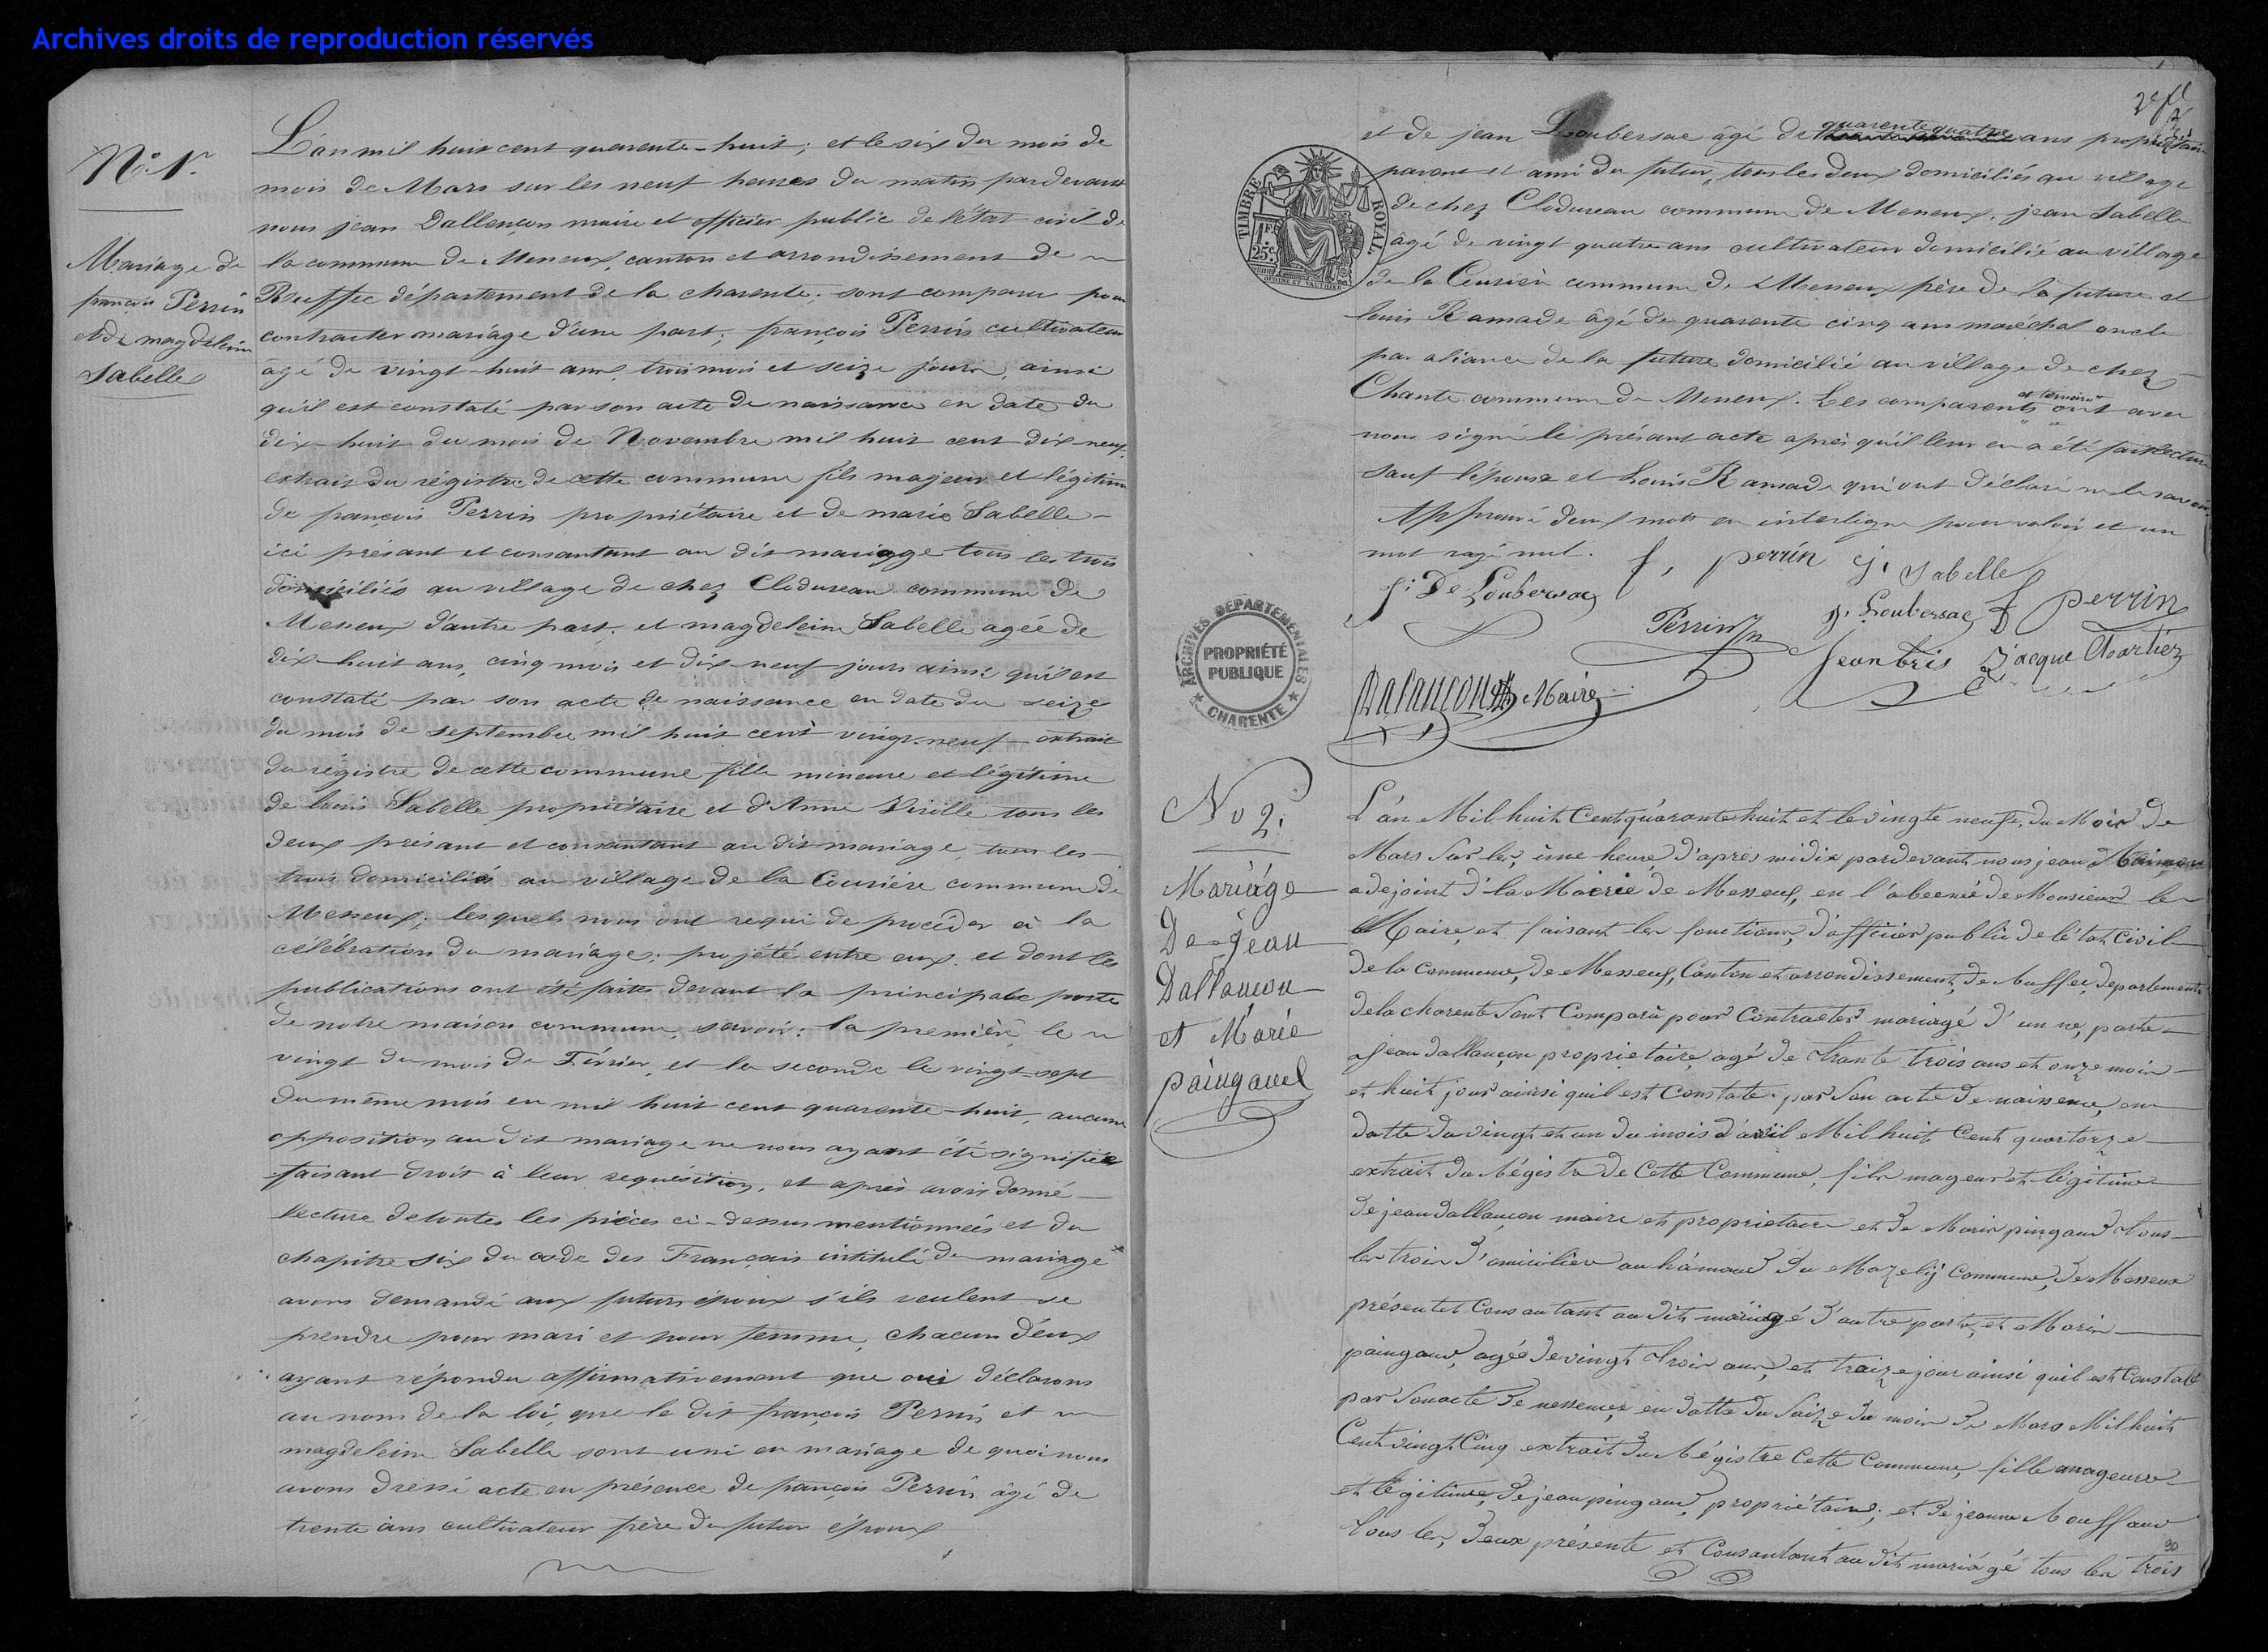 Archives droits de reproduction réservés
N.° 1.er
Mariage de
françois Perrin
et de magdeleine
Sabelle
L'an mil huit cent quarente-huit; et le six du mois de
mois de Mars sur les neuf heures du matin pardevant
nous jean Dallençon maire et officier public de l'état civil de
la commune de Messeux, canton et arrondissement de
Ruffec département de la charente; sont comparu pour
contracter mariage d'une part; françois Perrin cultivateur
âgé de vingt-huit ans, trois mois et seize jours, ainsi
qu'il est constaté par son acte de naissance en date du
dix-huit du mois de Novembre mil huit cent dix neuf,
extrait du régistre de cette commune fils majeur et légitime
de françois Perrin propriétaire et de marie Sabelle
ici présant et consantant au dit mariage tous les trois
domiciliés au village de chez Clodureau commune de
Messeux d'autre part. et magdeleine Sabelle agée de
dix-huit ans, cinq mois et dix neuf jours ainsi qu'il est
constaté par son acte de naissance en date du seize
du mois de septembre mil huit cent vingt-neuf extrait
du régistre de cette commune fille mineure et légitime
de louis Sabelle propriétaire et d'Anne tous les
deux présant et consantant au dit mariage, tous les
trois domiciliés au village de la Courière commune de
Messeux; lesquels nous ont requi de procéder à la
célébration du mariage; projété entre eux et dont les
publications ont été faites devant la principale porte
de notre maison commune, savoir: la première le
vingt du mois de Février, et la seconde le vingt-sept
du même mois en mil huit cent quarente-huit, aucune
opposition au dit mariage ne nous ayant été signifiée
faisant droit à leur requisition, et après avoir donné
lecture de toutes les pièces ci-dessus mentionnées et du
chapitre six du code des Français intitulé du mariage
avons demandé aux futurs époux s'ils veulent se
prendre pour mari et pour femme, chacun d'eux
ayant répondu affirmativement que oui déclarons
au nom de la loi, que le dit françois Perrin et
magdeleine Sabelle sont uni en mariage de quoi nous
avons dressé acte en présence de françois Perrin âgé de
trente ans cultivateur frère du futur époux
et de jean Loubersac âgé de quarente quatre ans propriétaire
parent et ami du futur, tous les deux domiciliés au village
de chez Clodureau commune de Messeux, jean Sabelle
âgé de vingt quatre ans cultivateur domicilié au village
de la Courière commune de Messeux frère de la future et
louis Ramade âgé de quarente cinq ans maréchal oncle
par aliance de la future domicilié au village de chez
Chante commune de Messeux. Les comparents et temoins ont avec
nous signé le présant acte après qu'il leur en a été fait lecture
sauf l'épouse et Louis Ramade qui ont déclaré ne le savoir.
Approuvé deux mots en interligne pour valoir et un
mot rayé nul.
f. perrin
j. Sabelle
j. De Loubersac
Perrin
j. Loubersac
f perrin
Jean bris
Jacque Chartier
Dalançon Maire
TIMBRE ROYAL
1F. 25c.
ARCHIVES DÉPARTEMENTALES
PROPRIÉTÉ PUBLIQUE
★ CHARENTE ★
No 2.
Mariage
De Jean
Dallançon
et Marie
paingaud
L'an Mil huit Cent quarante huit et le vingte neufe, du Mois De
Mars Sur les, une heure, d'apres midix pardevant nous jean
adejoint d'la Mairie de Messeux, en l'abcence de Monsieur le
Maire, et faisant les fonctions, d'officier public de l'état Civil
de la Commune, de Messeux, Canton et arrondissement, de Ruffec, departement
de la charente Sont Comparà pour Contracter mariagé d'un ne, parte
jean dallançon proprietaire, agé de trante trois ans et onze mois
et huit jour ainsi quil est Constaté par Son acte de naissence, en
datte du vingt et un du mois d'avril Mil huit Cent quartorze
extrait du Régistre de Cette Commune, fils mageur et légitime
de jean dallançon maire et proprietaire et de Marie pingaud tous
les trois d'omiciliér au hámaud du Mazelij Commune, de Messeux
présentet Consantant au dit mariagé d'autre parte, et Marie
paingaud, agée de vingt trois ans, et traize jour ainsi quil est Constaté
par Sonacte de nessence, en datte du Saize du mois de Mars Mil huit
Cent vingt Cinq extrait du Régistre Cette Commune, fille mageure
et légitime, de jean pingaud, propriétaire; et de jeanne Rouffaud
tous les, deux présente et Consantant au dit mariagé tous les trois